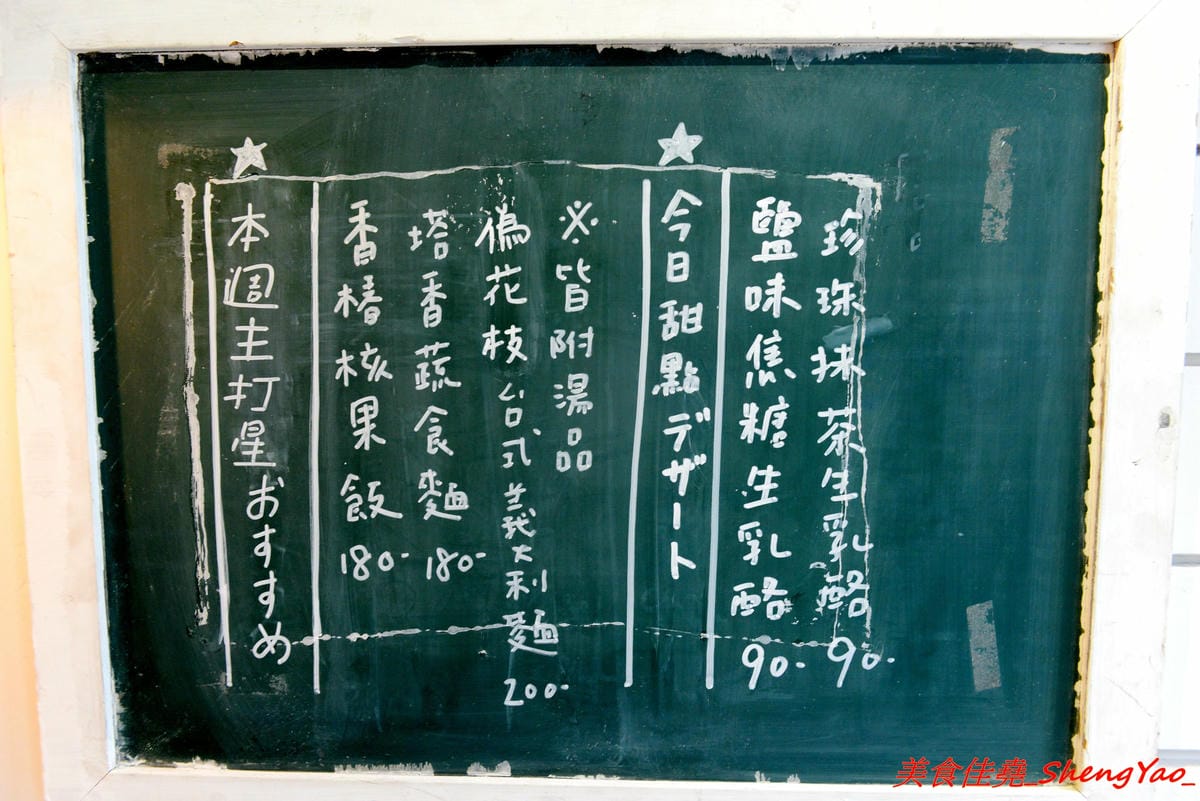 本週主打星おすすめ
香椿核果飯 180-
塔香蔬食麵 180-
偽花枝台式義大利麵 200-
※皆附湯品
今日甜點デザート
鹽味焦糖生乳酪 90-
珍珠抹茶生乳酪 90-
美食佳堯_ShengYao_